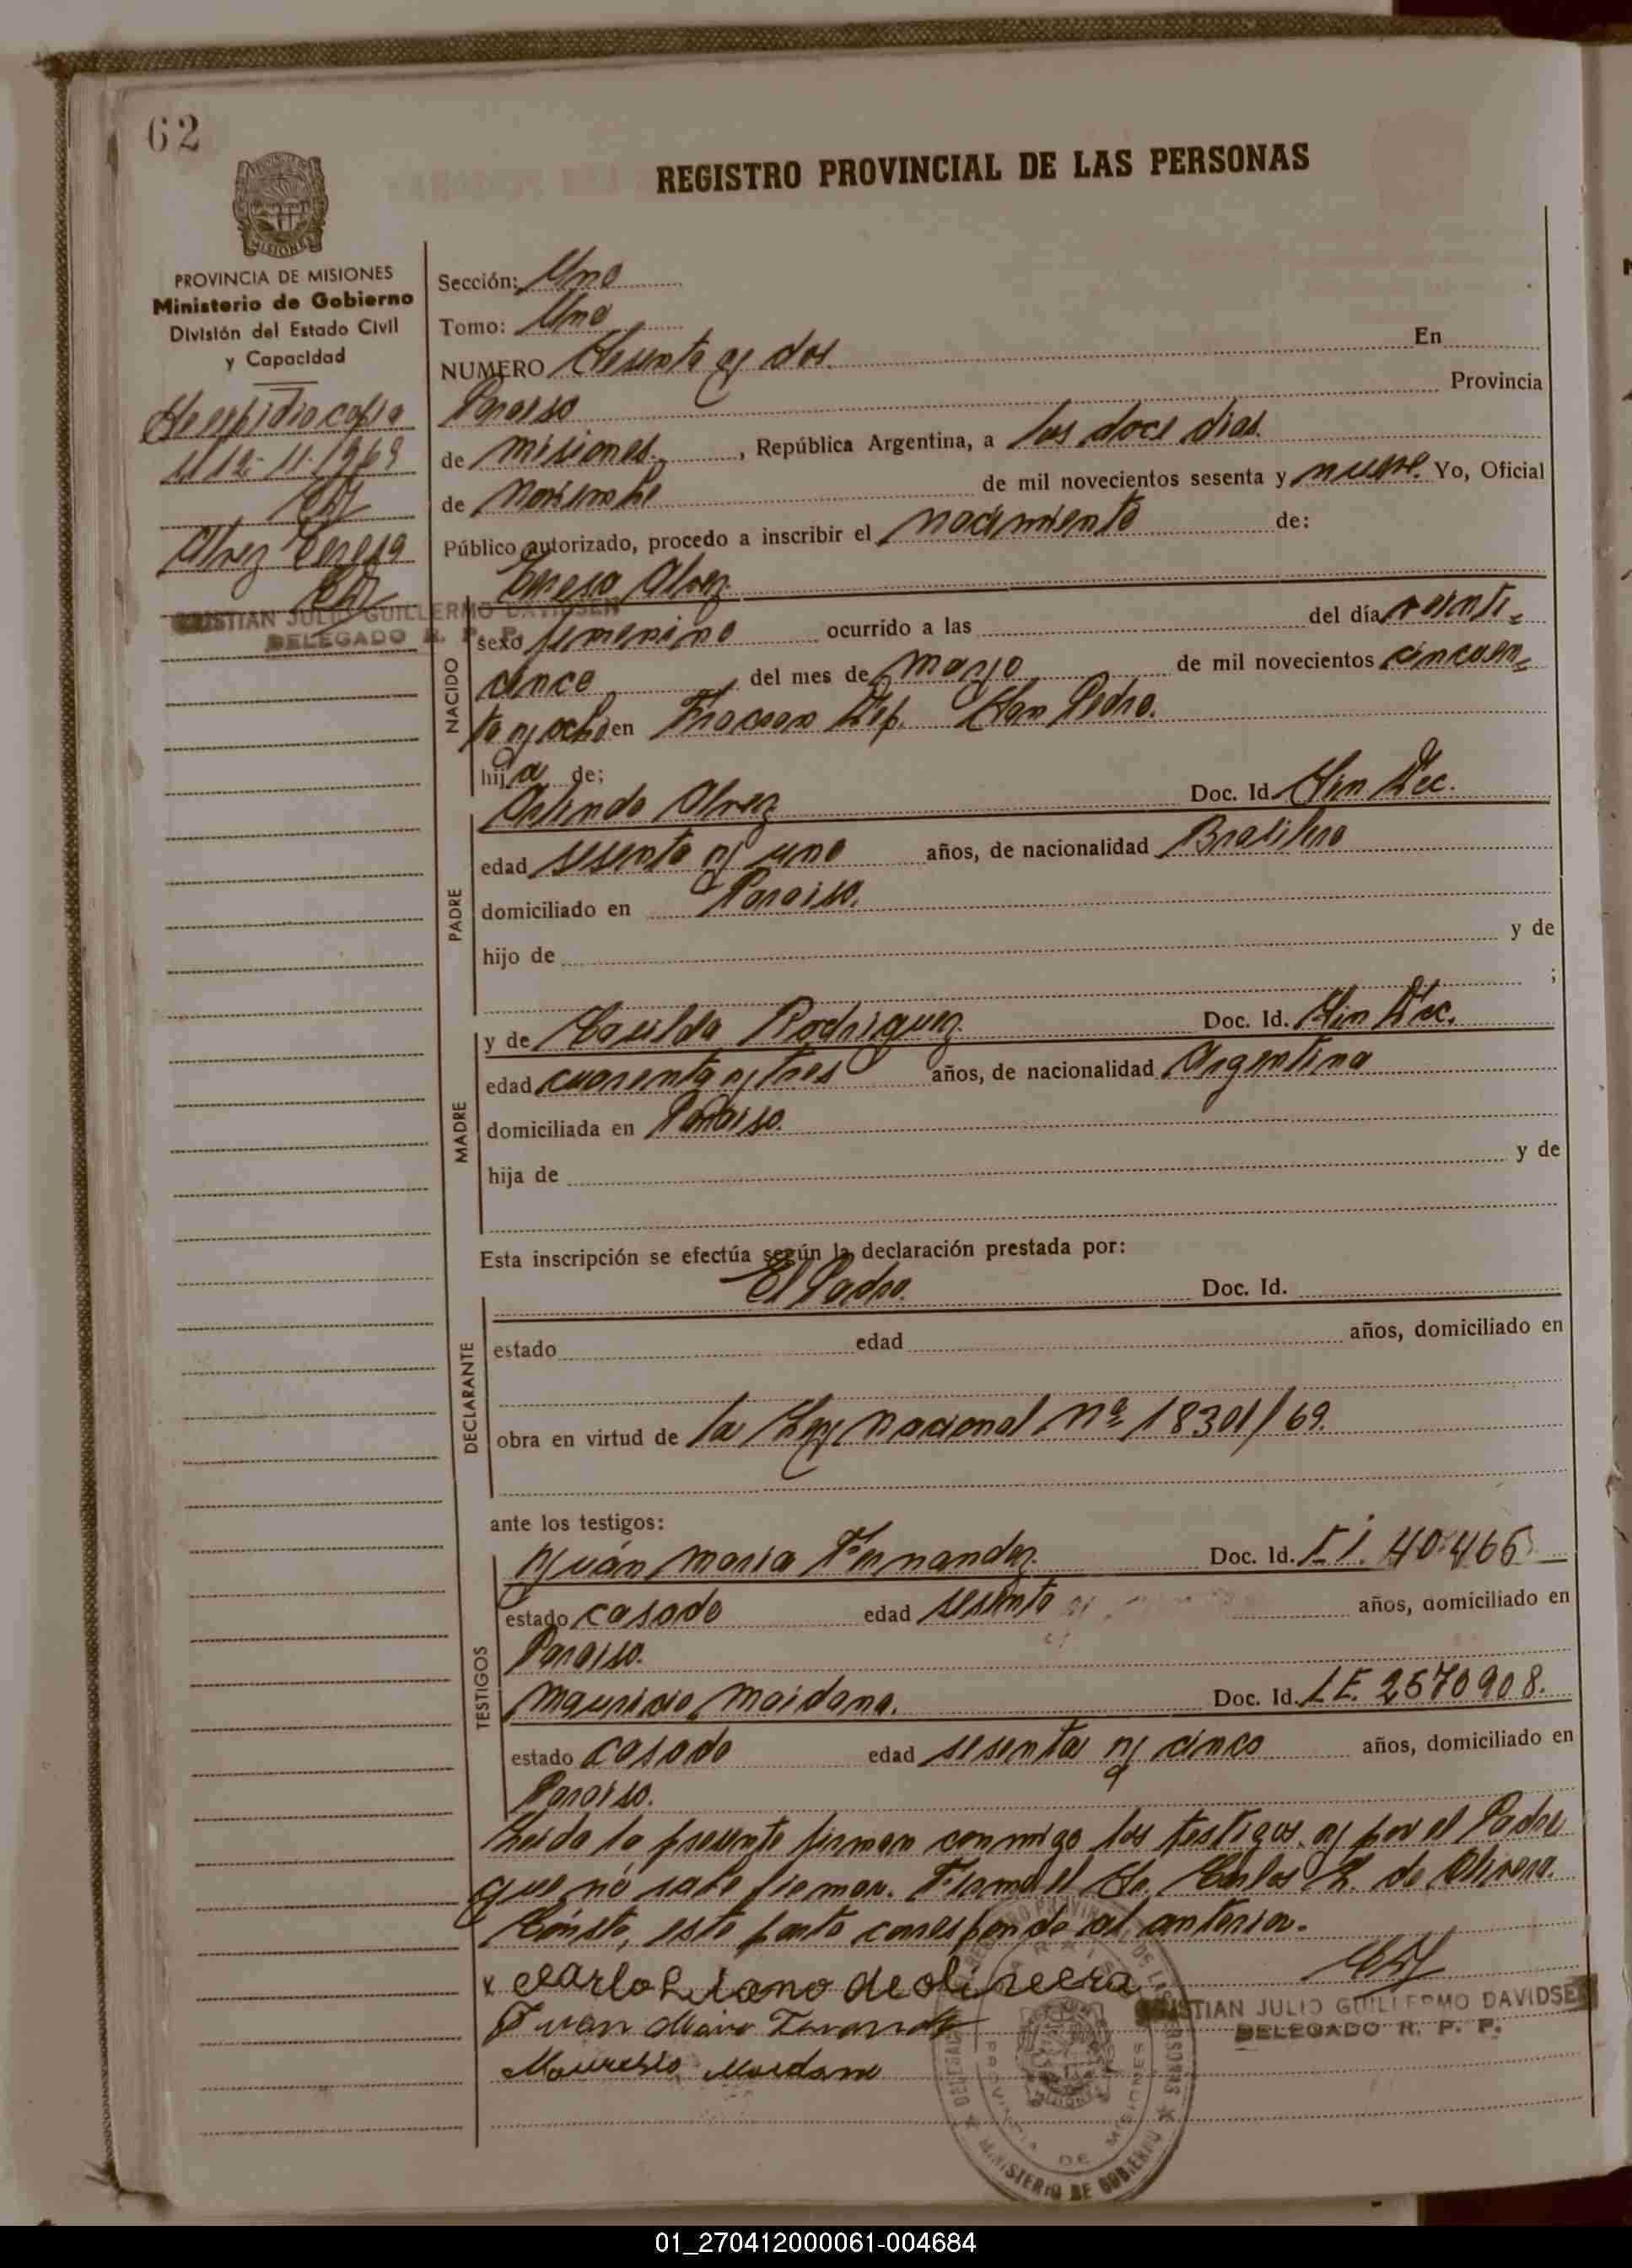 62
REGISTRO PROVINCIAL DE LAS PERSONAS
PROVINCIA DE MISIONES
Ministerio de Gobierno
División del Estado Civil
y Capacidad
Se expidio copia
el 12-11-1969
Alvez Teresa
CRISTIAN JULIO GUILLERMO DAVIDSEN
DELEGADO R. P. P.
Sección: Uno
Tomo: Uno
NUMERO Sesenta y dos. En
Paraiso Provincia
de Misiones, República Argentina, a los doce dias
de Noviembre de mil novecientos sesenta y nueve. Yo, Oficial
Público autorizado, procedo a inscribir el nacimiento de:
Teresa Alvez
NACIDO
sexo femenino ocurrido a las del día veinti-
cinco del mes de marzo de mil novecientos cincuen-
ta y ocho en Fracran Dep. San Pedro.
hija de;
PADRE
Arlindo Alvez Doc. Id. Sin Dec.
edad sesenta y uno años, de nacionalidad Brasilero
domiciliado en Paraiso.
hijo de y de
;
MADRE
y de Casilda Rodriguez Doc. Id. Sin Dec.
edad cuarenta y tres años, de nacionalidad Argentina
domiciliada en Paraiso.
hija de y de
Esta inscripción se efectúa según la declaración prestada por:
DECLARANTE
El Padre. Doc. Id.
estado edad años, domiciliado en
obra en virtud de la Ley Nacional Nº 18301/69.
ante los testigos:
TESTIGOS
Juán Maria Fernandez Doc. Id. C.I. 40.466
estado casado edad sesenta años, domiciliado en
Paraiso.
Mauricio Maidana. Doc. Id. L.E. 2670908.
estado casado edad sesenta y cinco años, domiciliado en
Paraiso.
Leida la presente firman conmigo los testigos y por el Padre
que nó sabe firmar. Firma el Sr. Carlos L. de Olivera.
Cónste, este parte corresponde al anterior.
x Carlos Liano de oliveera
Juan Maria
Mauresio Maidana
CRISTIAN JULIO GUILLERMO DAVIDSEN
DELEGADO R. P. P.
PROVINCIA DE MISIONES
MINISTERIO DE GOBIERNO
01_270412000061-004684